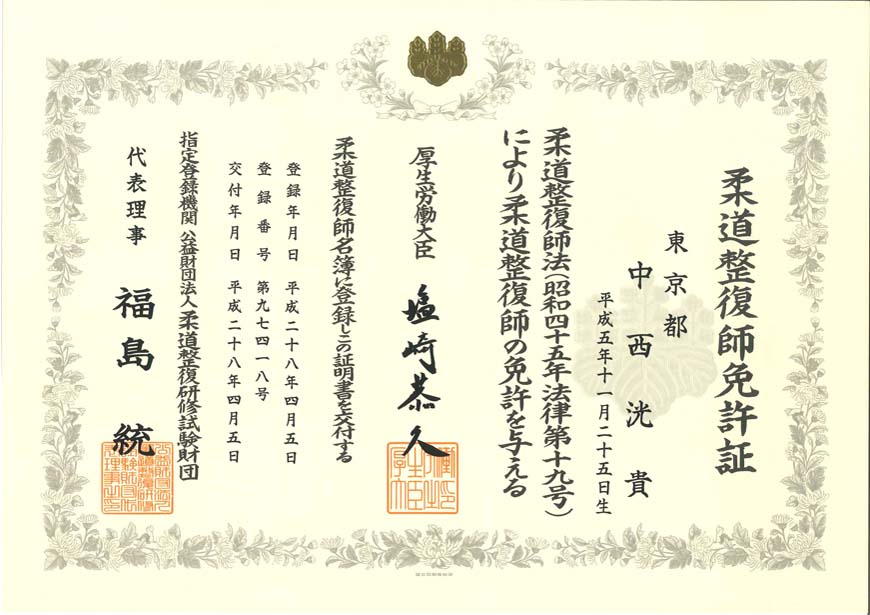 柔道整復師免許証
東京都
中西洸貴
平成五年十一月二十五日生
柔道整復師法(昭和四十五年法律第十九号)
により柔道整復師の免許を与える
厚生労働大臣 塩崎恭久
柔道整復師名簿に登録しこの証明書を交付する
登録年月日 平成二十八年四月五日
登録番号 第九七四一八号
交付年月日 平成二十八年四月五日
指定登録機関 公益財団法人柔道整復研修試験財団
代表理事 福島統